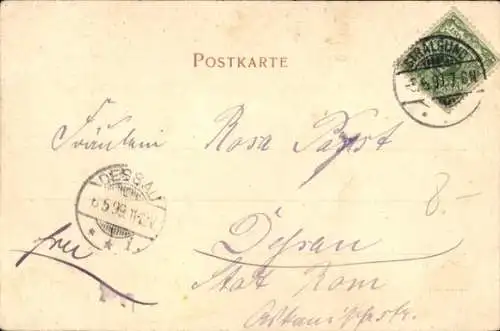 POSTKARTE
STRALSUND
Fräulein Rosa Pabst
DESSAU
6.5.99.11-12V.
* * 1.
8.-
frei
Dessau
Stadt Rom
Askanischestr.